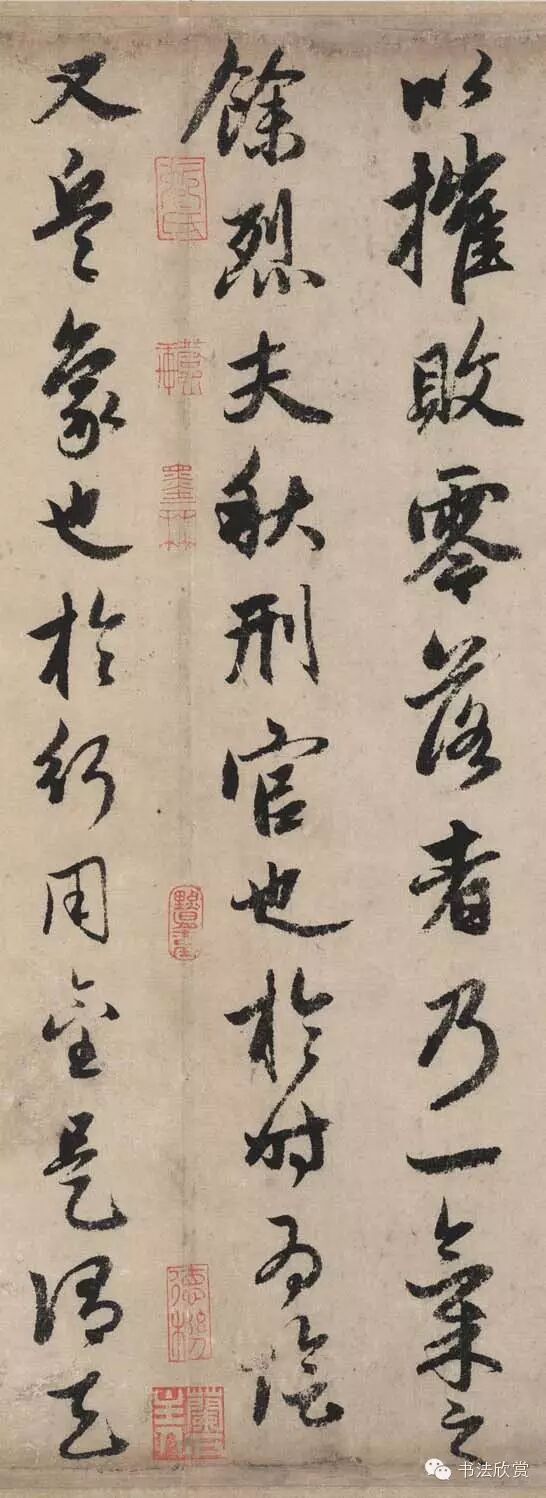 以摧敗零落者乃一氣之
餘烈夫秋刑官也於時為陰
又兵象也於行用金是謂天
墨林
书法欣赏